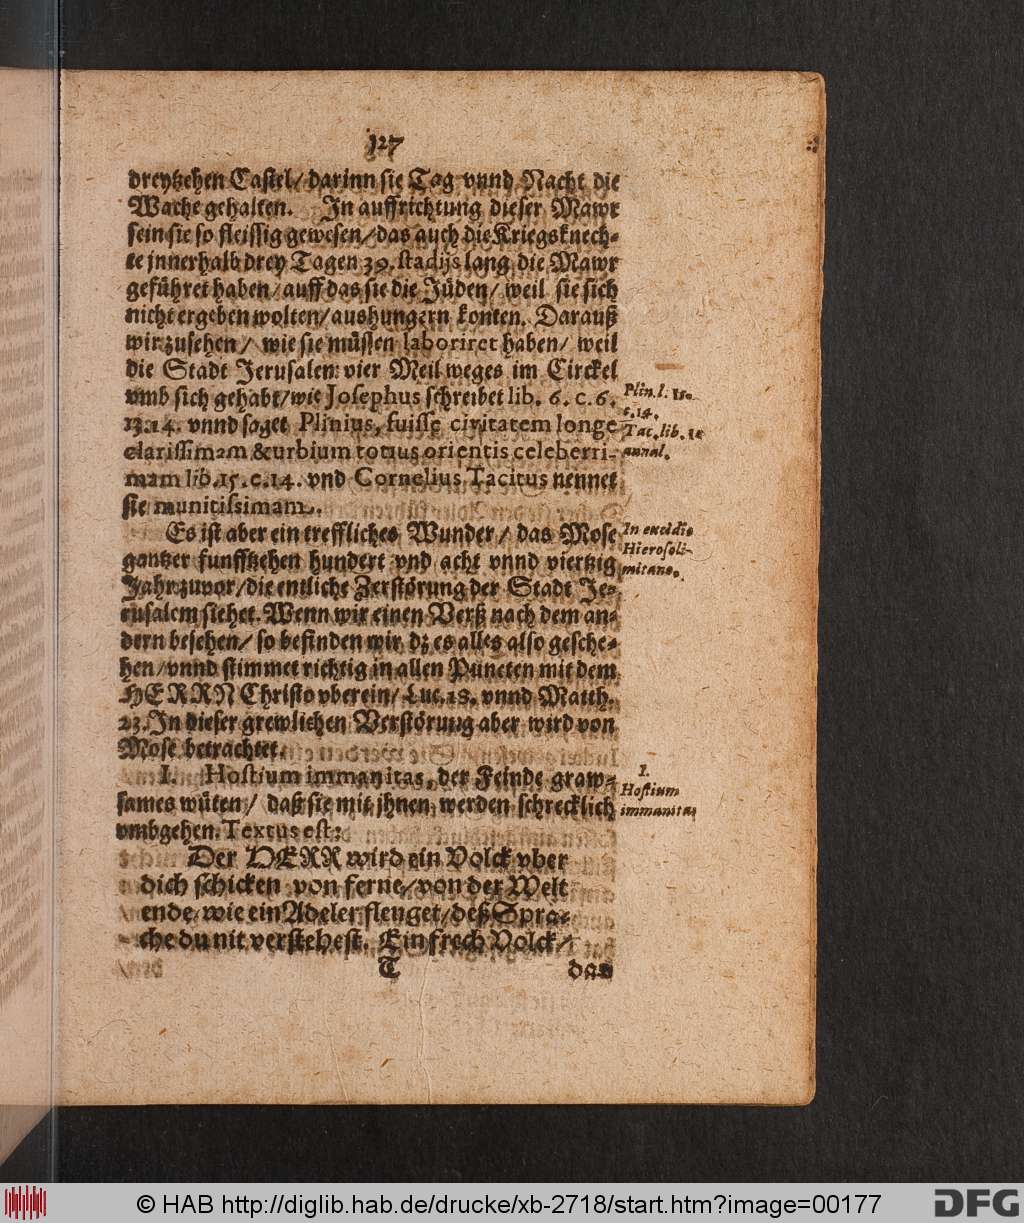 127
dreytzehen Castel/ darinn sie Tag vnnd Nacht die
Wache gehalten. In auffrichtung dieser Mawr
sein sie so fleissig gewesen/ das auch die Kriegsknech-
te jnnerhalb drey Tagen 39. stadijs lang die Mawr
geführet haben/ auff das sie die Jüden/ weil sie sich
nicht ergeben wolten/ aushungern konten. Darauß
wir zusehen/ wie sie müssen laboriret haben/ weil
die Stadt Jerusalem vier Meil weges im Circkel
vmb sich gehabt/ wie Josephus schreibet lib. 6. c. 6.
13. 14. vnnd saget Plinius, fuisse civitatem longe
clarissimam & urbium totius orientis celeberri-
mam lib. 15. c. 14. vnd Cornelius Tacitus nennet
sie munitissimam.
Plin. l. 15.
c. 14.
Tac. lib. 12
annal.
Es ist aber ein treffliches Wunder/ das Mose
gantzer funfftzehen hundert vnd acht vnnd viertzig
Jahr zuvor/ die entliche Zerstörung der Stadt Je-
rusalem siehet. Wenn wir einen Verß nach dem an-
dern besehen/ so befinden wir dz es alles also gesche-
hen/ vnnd stimmet richtig in allen Puncten mit dem
HERRN Christo vberein/ Luc. 18. vnnd Matth.
23. In dieser grewlichen Verstörung aber wird von
Mose betrachtet.
In excidio
Hierosoli-
mitano.
I. Hostium immanitas, der Feinde graw-
sames wüten/ daß sie mit jhnen werden schrecklich
vmbgehen. Textus est:
I.
Hostium
immanitas
Der HERR wird ein Volck vber
dich schicken von ferne/ von der Welt
ende/ wie ein Adeler fleuget/ deß Spra-
che du nit verstehest. Ein frech Volck/
T das
© HAB http://diglib.hab.de/drucke/xb-2718/start.htm?image=00177
DFG